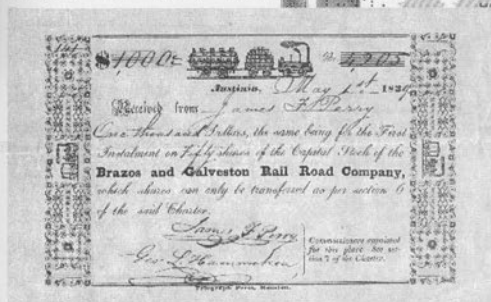 $1000
Austinia, May 1st 183
Received from James F Perry
One thousand Dollars, the same being for the First
Instalment on Fifty shares of the Capital Stock of the
Brazos and Galveston Rail Road Company,
which shares can only be transferred as per section 6
of the said Charter.
James F Perry
Geo. L Hammeken
Commissioners appointed
for this place. See sec-
tion 7 of the Charter.
Telegraph Press, Houston.